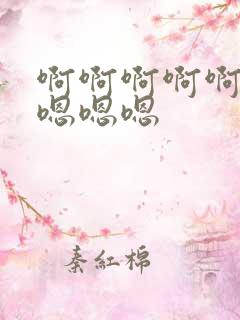 啊啊啊啊啊
嗯嗯嗯
秦红棉